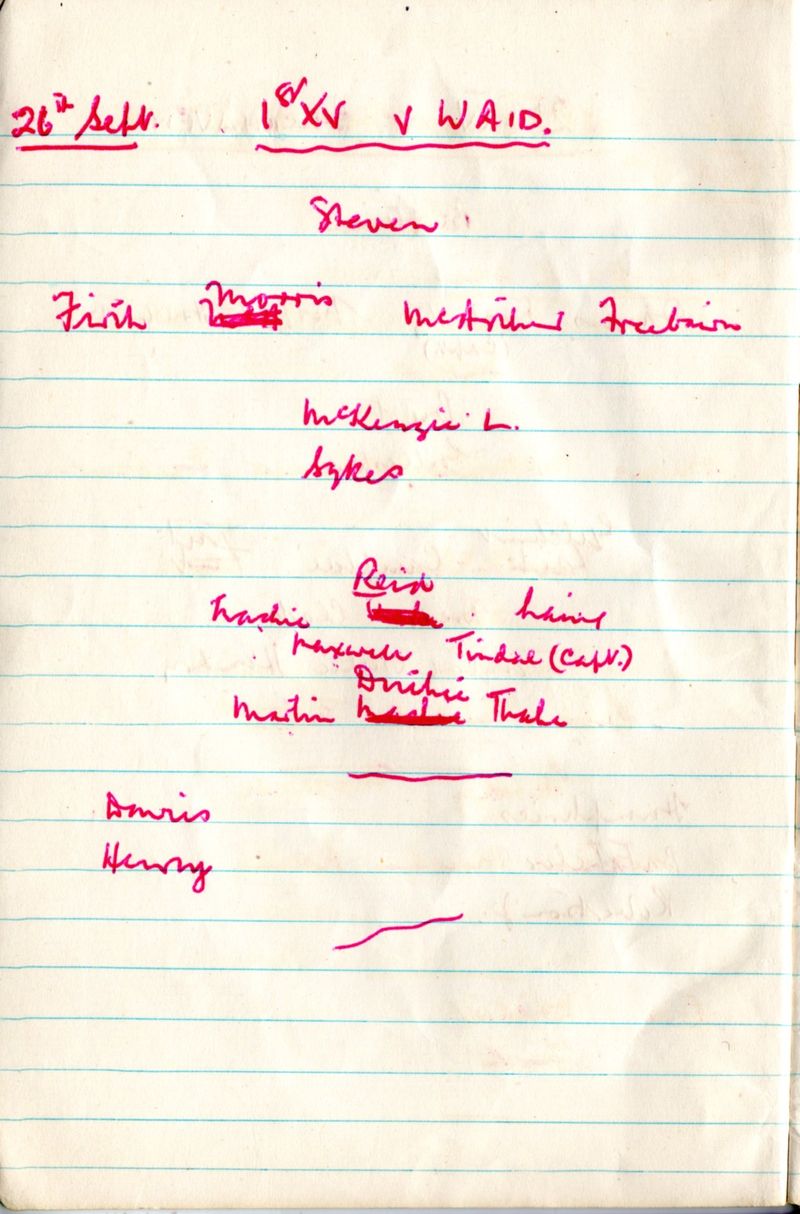 26th Sept. 1st XV v WAID.
Steven
Firth Morris McArthur Freebairn
McKenzie L.
Sykes
Reid
Laing
Maxwell Tindal (Capt.)
Duthie
Martin Thake
Henry